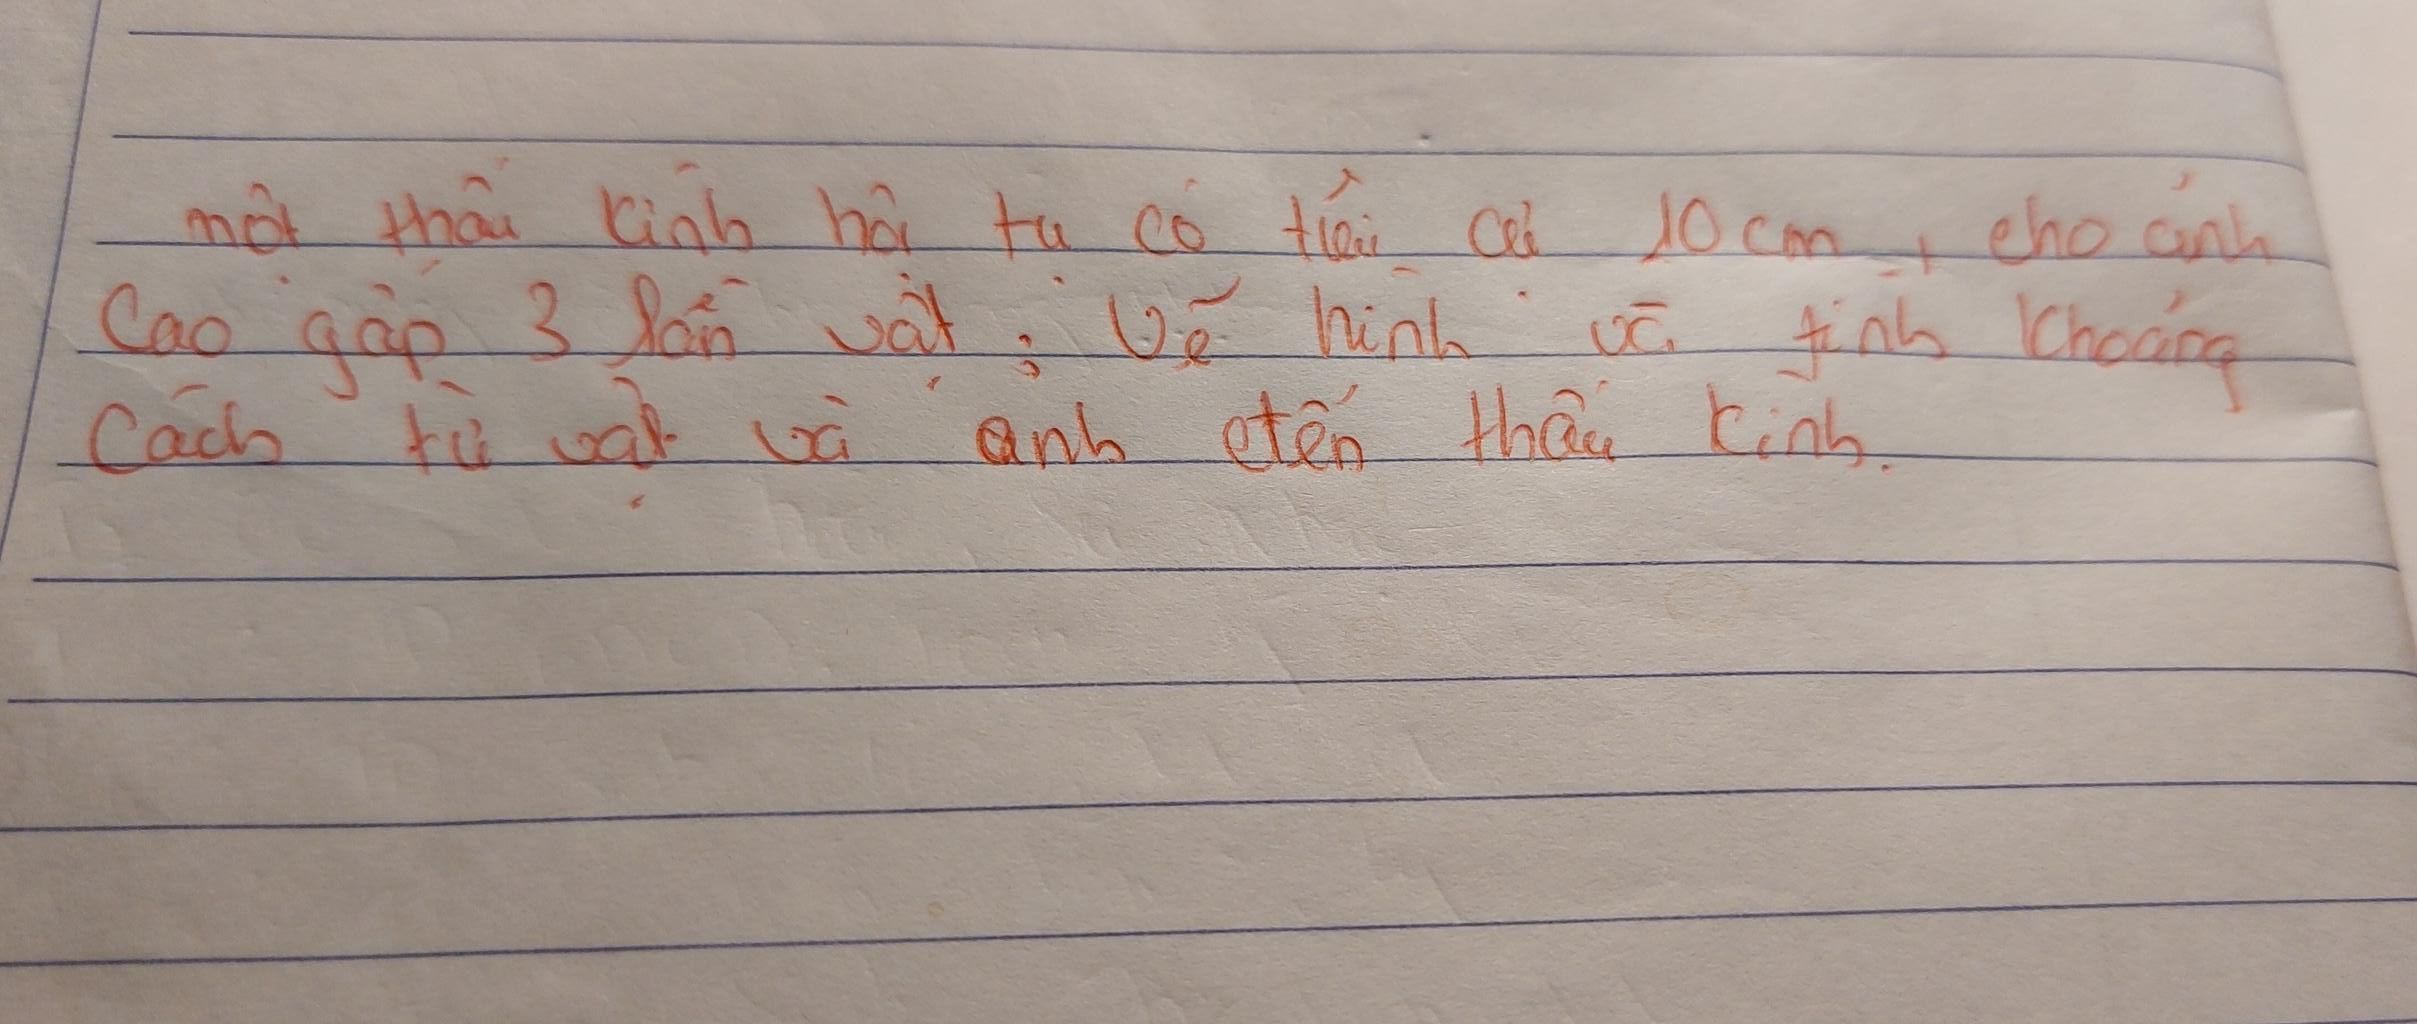 một thấu kính hội tụ có tiêu cự 10 cm, cho ảnh
cao gấp 3 lần vật; vẽ hình và tính khoảng
cách từ vật và ảnh đến thấu kính.